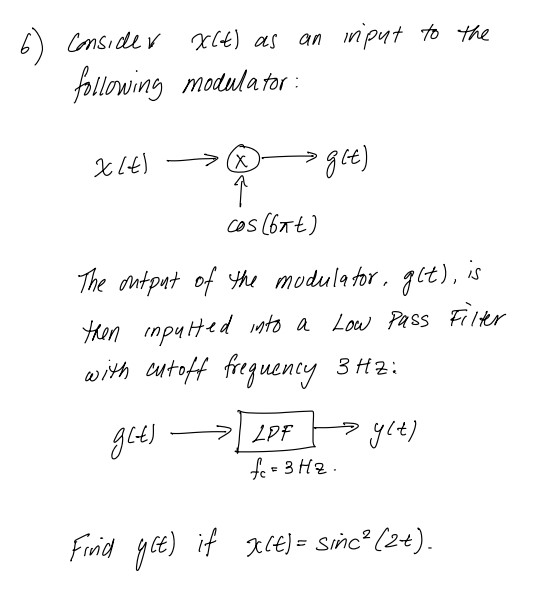 6) Consider x(t) as an input to the
following modulator:
x(t) → ⊗ → g(t)
↑
cos(6πt)
The output of the modulator, g(t), is
then inputted into a Low Pass Filter
with cutoff frequency 3 Hz:
g(t) → LPF → y(t)
fc = 3 Hz.
Find y(t) if x(t) = sinc²(2t).